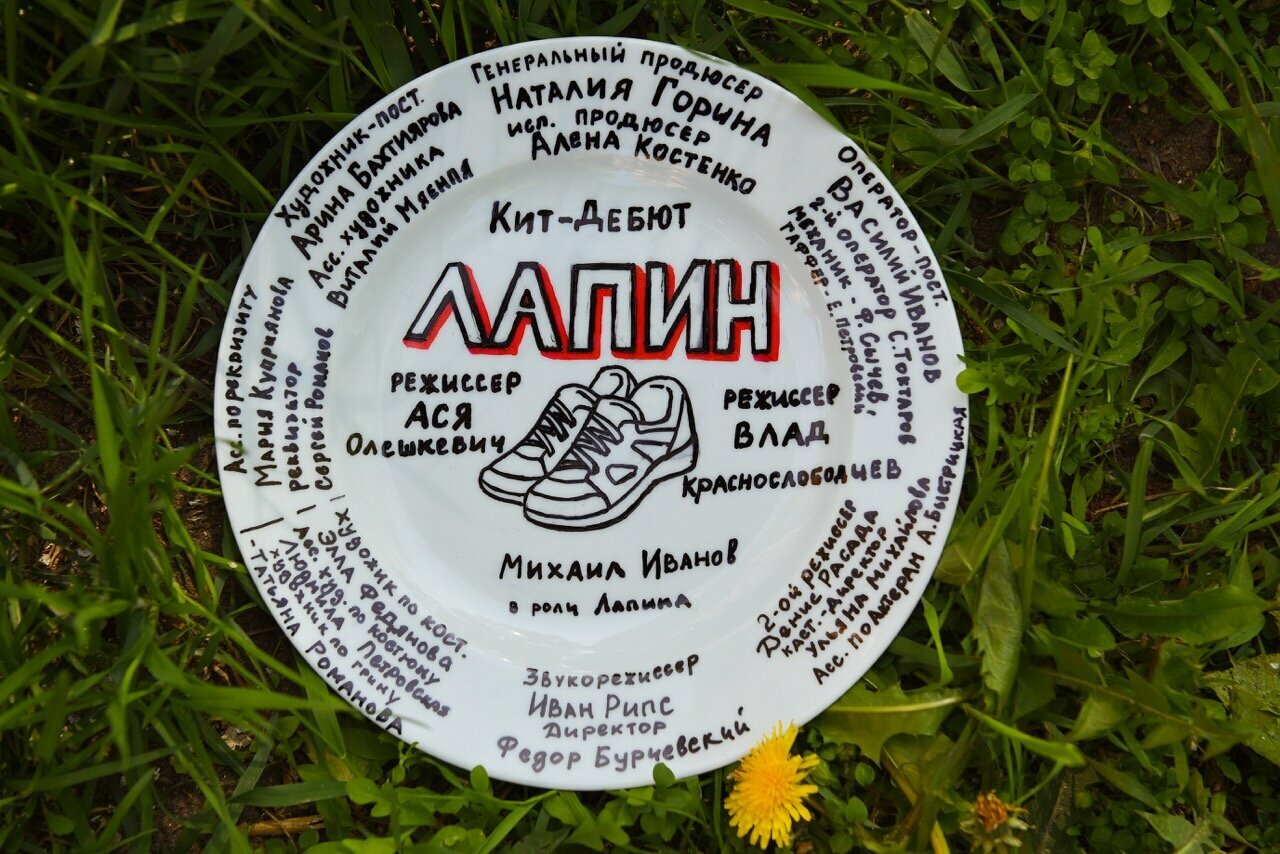 Генеральный продюсер
Наталия Горина
исп. продюсер
Алена Костенко
Художник-пост.
Арина Бахтиярова
Асс. художника
Виталий Мяенпя
Оператор-пост.
Василий Иванов
2-й оператор С. Тохтаров
механик - Ф. Сычев,
гаффер Е. Петровский
Кит-Дебют
ЛАПИН
режиссер
Ася
Олешкевич
режиссер
Влад
Краснослободцев
Михаил Иванов
в роли Лапина
Ас. по реквизиту
Мария Куприянова
реквизитор
Сергей Романов
художник по кост.
Элла Федянова
Асс. худ. по костюму
Людмила Петровская
художник по гриму
- Татьяна Романова
2-ой режиссер
Денис Расада
каст-директор
Ульяна Михайлова
Асс. по актерам А. Быстрицкая
Звукорежиссер
Иван Рипс
Директор
Федор Бурчевский